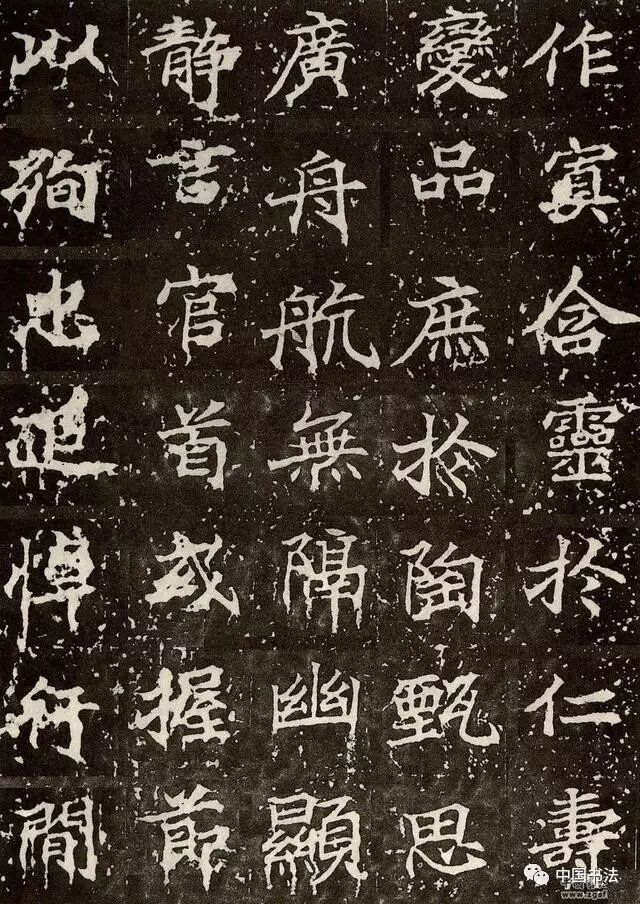 作寘含靈於仁壽
變品庶於陶甄思
廣舟航無隔幽顯
静言官首或握節
以殉忠追悼何間
中国书法